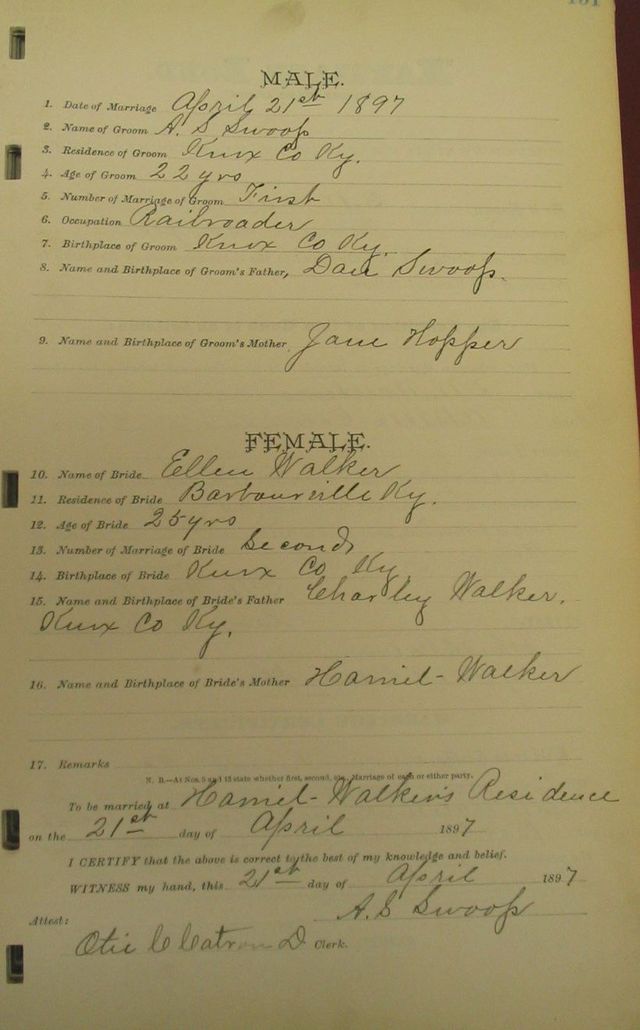 191
MALE.
1. Date of Marriage April 21st 1897
2. Name of Groom A. S Swoop
3. Residence of Groom Knox Co Ky.
4. Age of Groom 22 yrs
5. Number of Marriage of Groom First
6. Occupation Railroader
7. Birthplace of Groom Knox Co Ky.
8. Name and Birthplace of Groom's Father, Dan Swoop.
9. Name and Birthplace of Groom's Mother Jane Hopper
FEMALE.
10. Name of Bride Ellen Walker
11. Residence of Bride Barbourville Ky.
12. Age of Bride 25 yrs
13. Number of Marriage of Bride Second
14. Birthplace of Bride Knox Co Ky
15. Name and Birthplace of Bride's Father Charley Walker.
Knox Co Ky.
16. Name and Birthplace of Bride's Mother Harriet Walker
17. Remarks
N. B.—At Nos. 5 and 13 state whether first, second, etc., Marriage of each or either party.
To be married at Harriet Walker's Residence
on the 21st day of April 1897
I CERTIFY that the above is correct to the best of my knowledge and belief.
WITNESS my hand, this 21st day of April 1897
A. S Swoop
Attest:
C Catron D. Clerk.